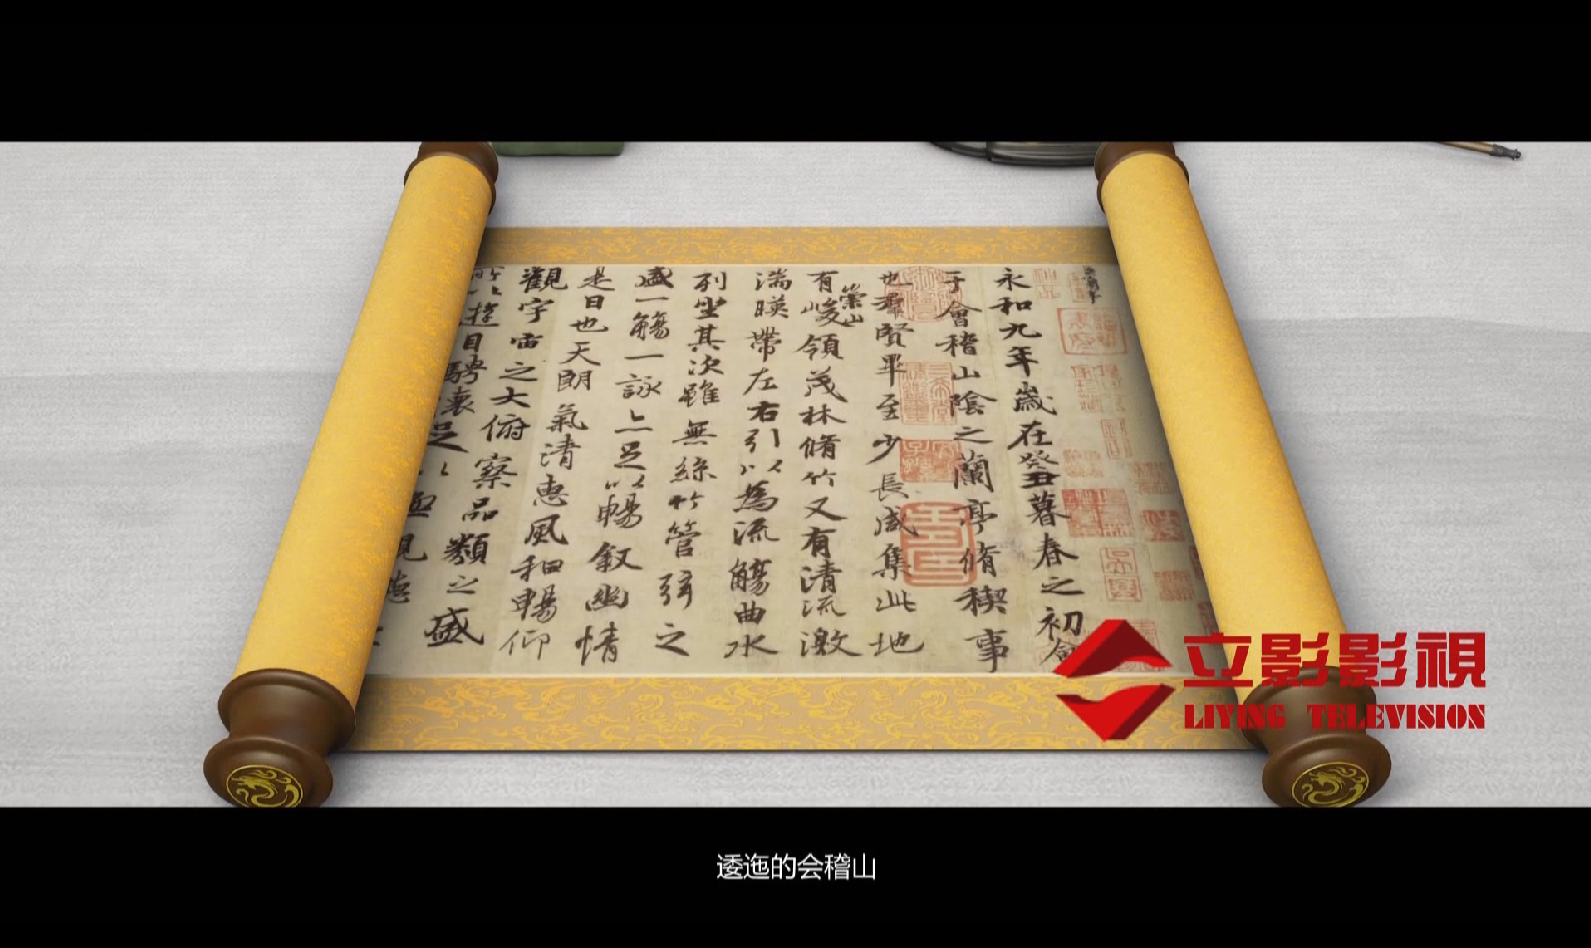 永和九年歲在癸丑暮春之初會
于會稽山陰之蘭亭脩稧事
也羣賢畢至少長咸集此地
有崇山峻領茂林脩竹又有清流激
湍暎帶左右引以為流觴曲水
列坐其次雖無絲竹管弦之
盛一觴一詠亦足以暢敘幽情
是日也天朗氣清惠風和暢仰
觀宇宙之大俯察品類之盛
所以遊目騁懷足以極視聽
立影影視
LIYING TELEVISION
逶迤的会稽山